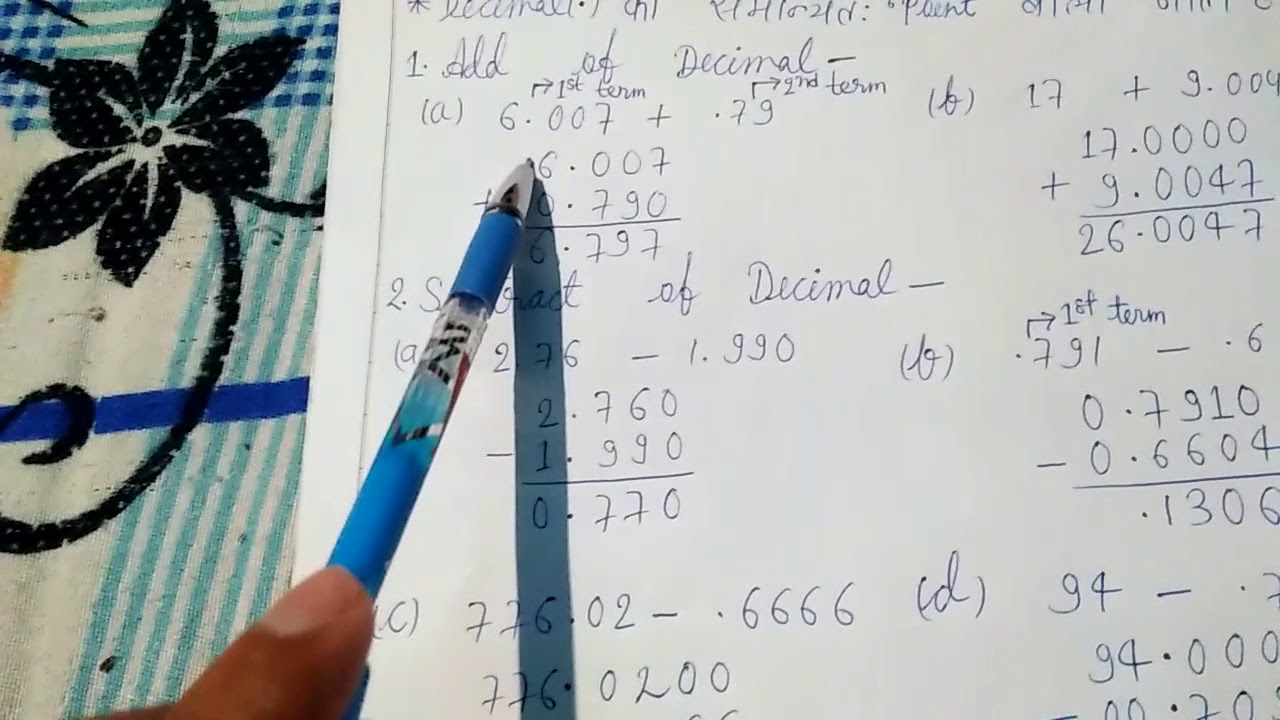 * Decimal(.) का रूपान्तरत: "Point
1. Add of Decimal –
1st term 2nd term
(a) 6.007 + .79
6.007
+ 0.790
6.797
(b) 17 + 9.004
17.0000
+ 9.0047
26.0047
2. S ract of Decimal –
(a 2.76 – 1.990
2.760
– 1.990
0.770
1st term
(b) .791 – .6
0.7910
– 0.6604
.1306
(C) 776.02 – .6666
776.0200
(d) 94 – .7
94.000
– 00.70